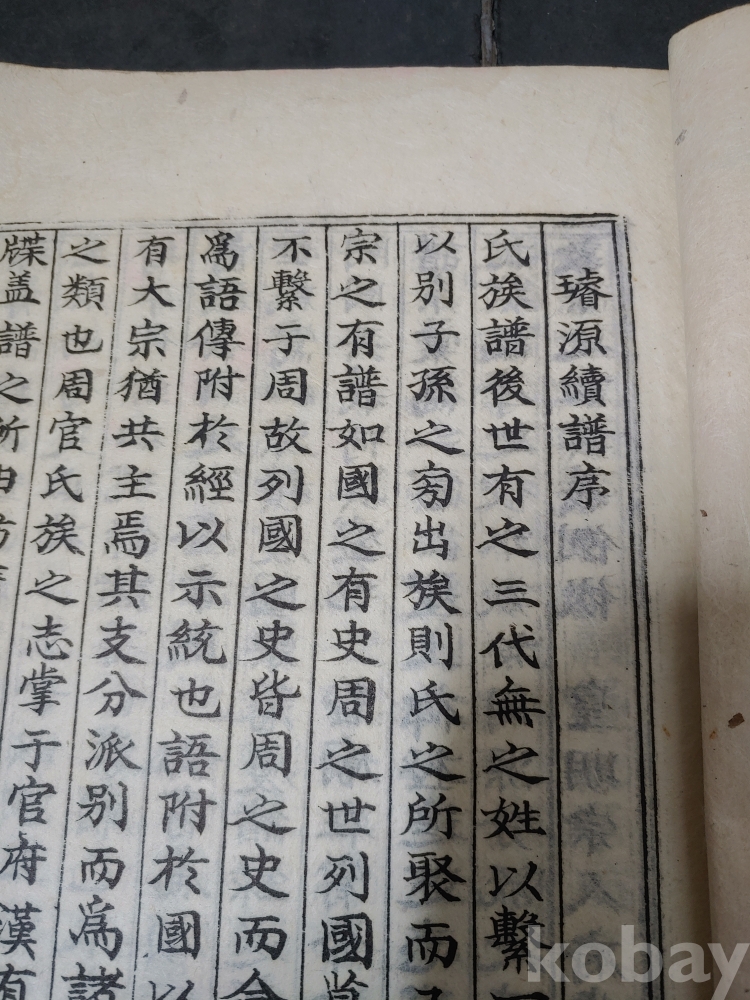 璿源續譜序
氏族譜後世有之三代無之姓以繫
以別子孫之旁出族則氏之所聚而
宗之有譜如國之有史周之世列國
不繫于周故列國之史皆周之史而
爲語傳附於經以示統也語附於國以
有大宗猶共主焉其支分派別而爲諸
之類也周官氏族之志掌于官府漢有
牒盖譜之所由
kobay